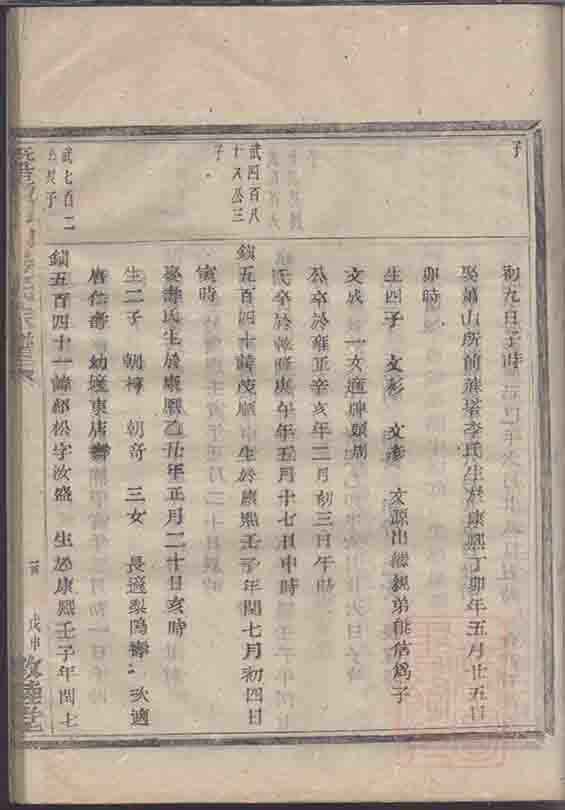 子
初九日子時
娶蕭山所前蔡塔李氏生於康熙丁卯年五月廿五日
卯時
生四子 文彩 文彪 文源出繼親弟能信爲子
文成 一女適牌頭周
公卒於雍正辛亥年三月初三日午時
氏卒於乾隆庚午年五月十七日申時
武四百八
十八公三
子
鎖五百四十諱茂順 生於康熙壬子年閏七月初四日
寅時
娶壽氏生於康熙乙丑年正月二十日亥時
生二子 朝 朝奇 三女 長適梨隖 次適
唐仁壽 幼適東店壽
武七百二
公 子
鎖五百四十一諱 松字汝盛 生於康熙壬子年閏七
戊申
敦睦堂